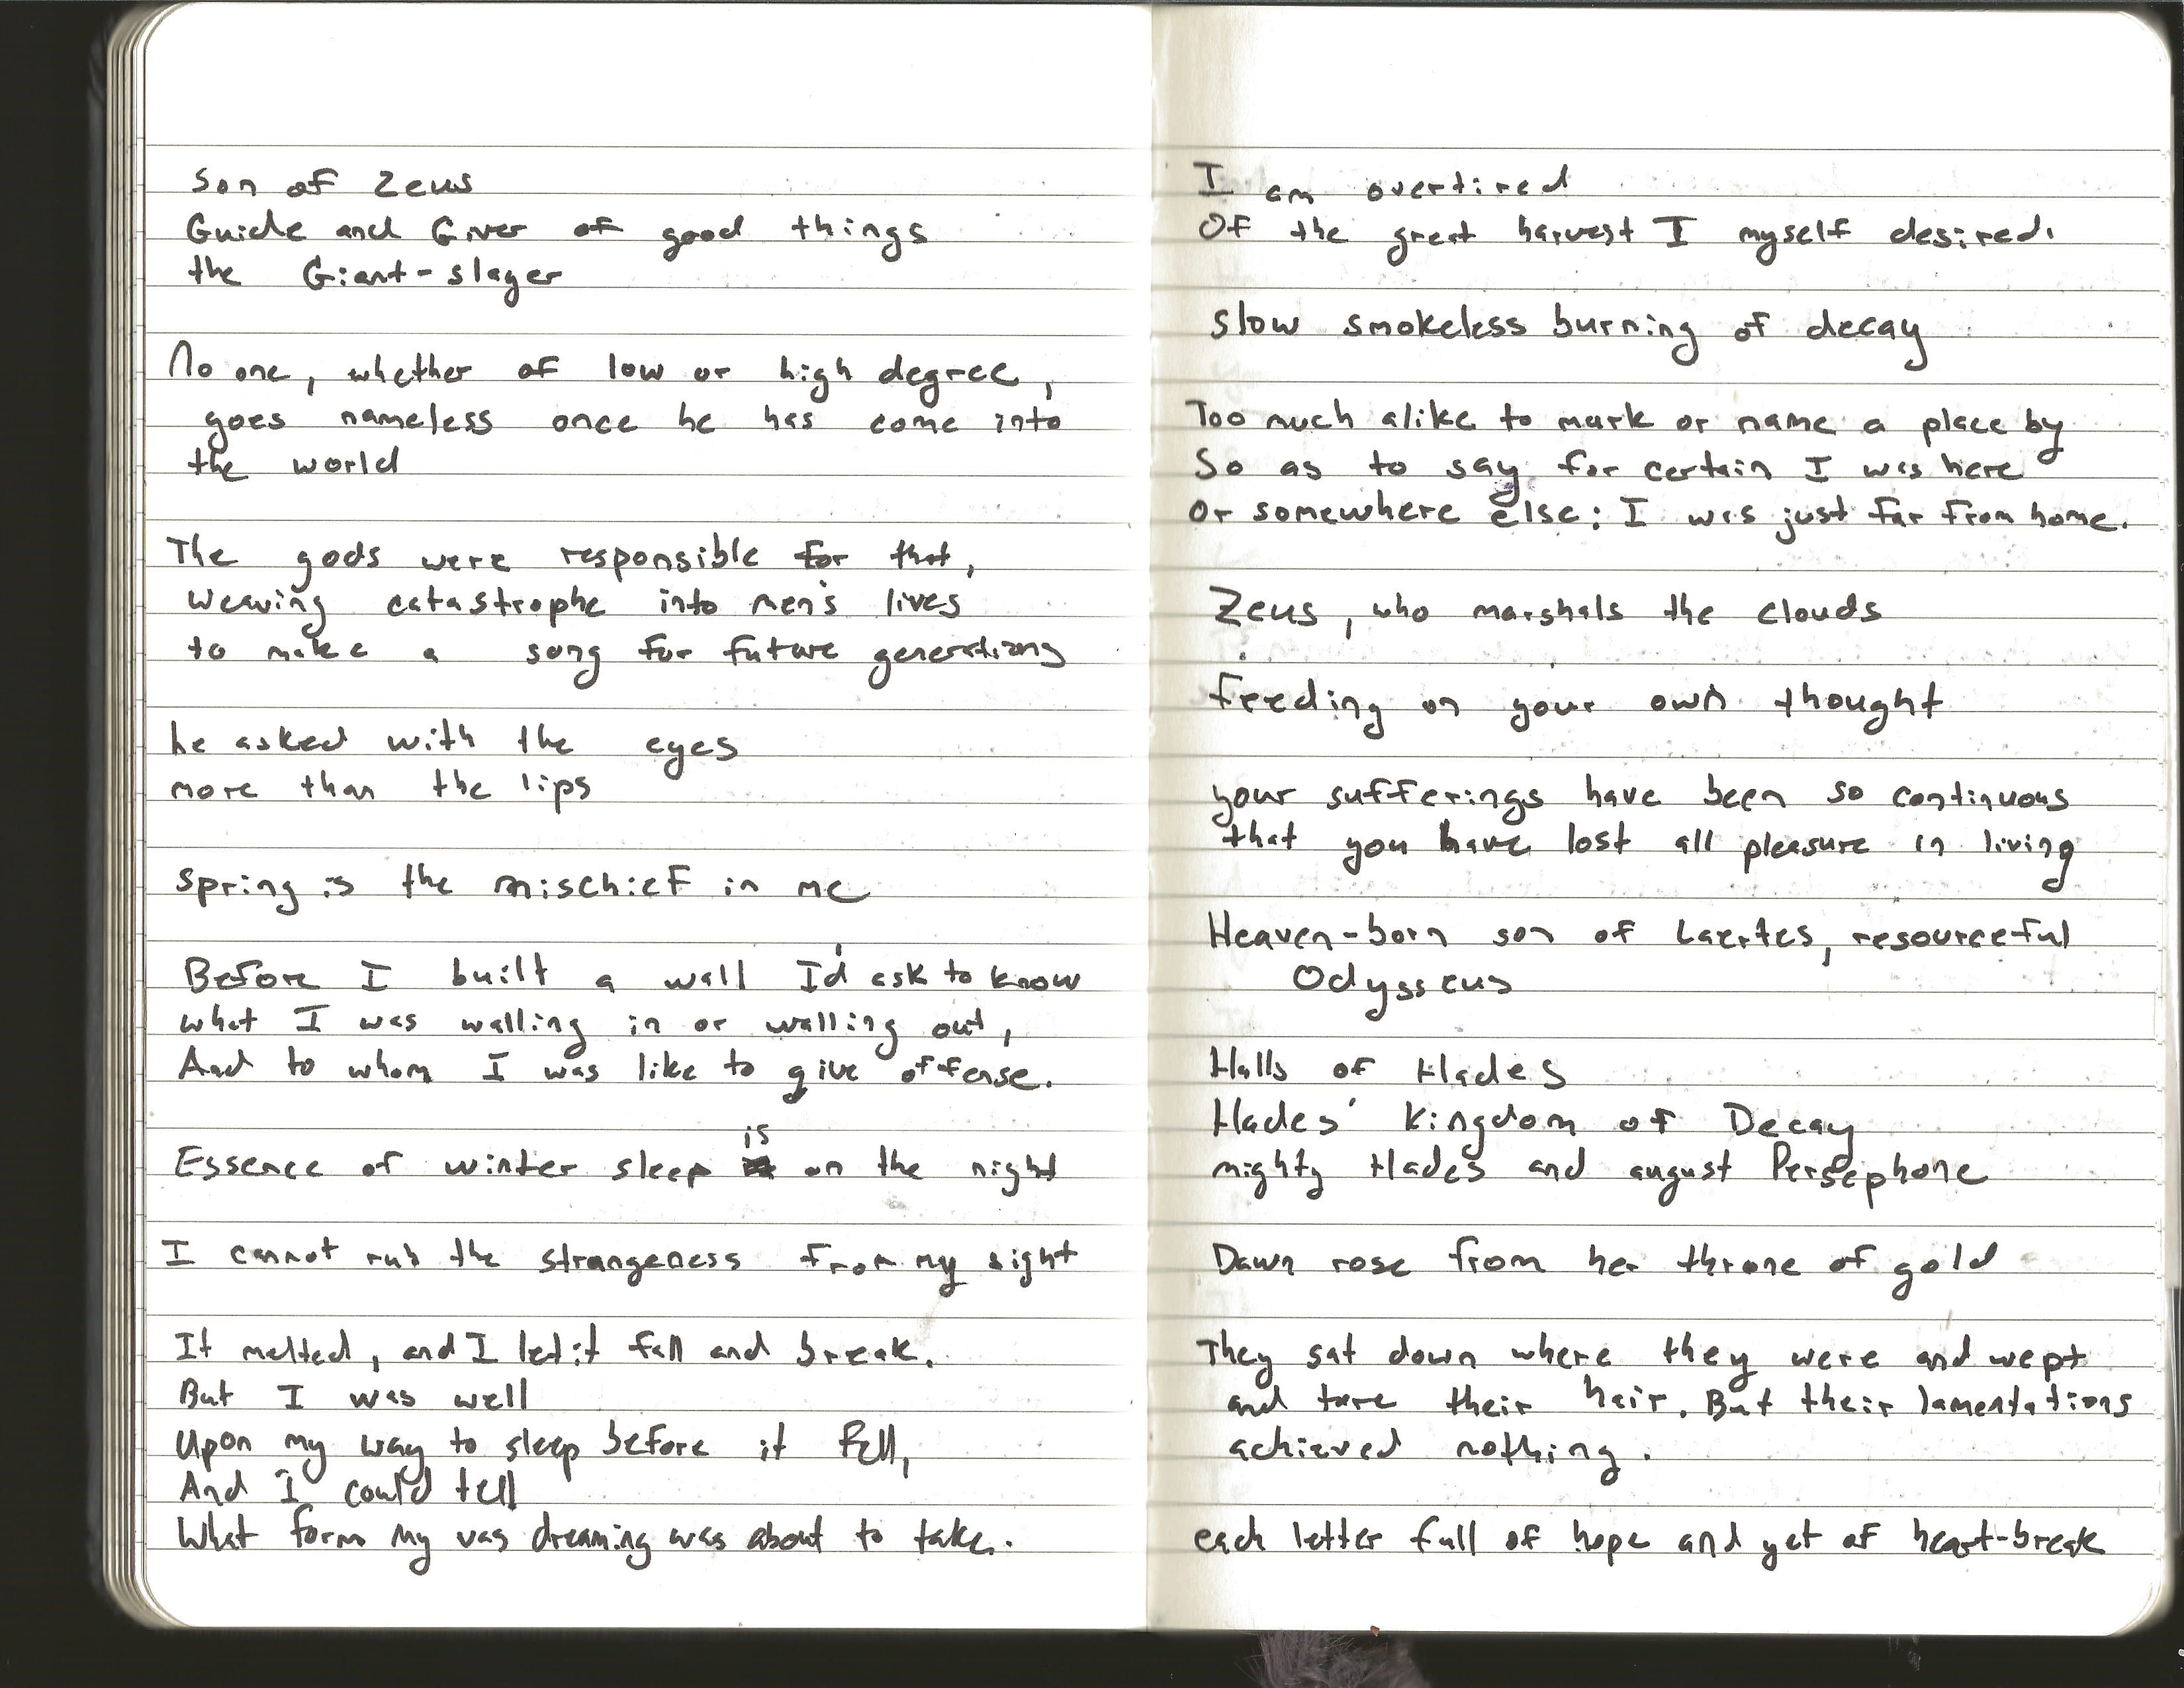 Son of Zeus
Guide and Giver of good things
the Giant-slayer
No one, whether of low or high degree,
goes nameless once he has come into
the world
The gods were responsible for that,
weaving catastrophe into men's lives
to make a song for future generations
he asked with the eyes
more than the lips
Spring is the mischief in me
Before I built a wall I'd ask to know
what I was walling in or walling out,
And to whom I was like to give offense.
Essence of winter sleep is on the night
I cannot rub the strangeness from my sight
It melted, and I let it fall and break.
But I was well
Upon my way to sleep before it fell,
And I could tell
What form my vas dreaming was about to take.
I am overtired
Of the great harvest I myself desired.
slow smokeless burning of decay
Too much alike to mark or name a place by
So as to say for certain I was here
Or somewhere else: I was just far from home.
Zeus, who marshals the clouds
feeding on your own thought
your sufferings have been so continuous
that you have lost all pleasure in living
Heaven-born son of Laertes, resourceful
Odysseus
Halls of Hades
Hades' Kingdom of Decay
mighty Hades and august Persephone
Dawn rose from her throne of gold
They sat down where they were and wept
and tore their hair. But their lamentations
achieved nothing.
each letter full of hope and yet of heart-break